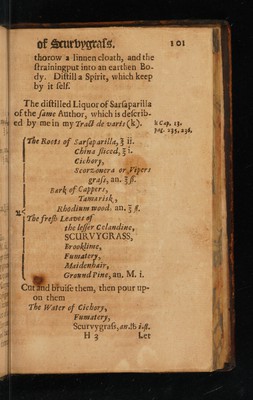 of Scurvygraſs. 101
thorow a linnen cloath, and the
ſtraining put into an earthen Bo-
dy. Diſtill a Spirit, which keep
by it ſelf.
The diſtilled Liquor of Sarſaparilla
of the ſame Author, which is deſcrib-
ed by me in my Tract de varis (k).
k Cap. 13.
pag. 235, 236.
The Roots of Sarſaparilla, ℥ ii.
China ſliced, ℥ i.
Cichory,
Scorzonera or Vipers
graſs, an. ℥ ſs.
Bark of Cappers,
Tamarisk,
Rhodium wood. an. ℥ ſs.
℞
The freſh Leaves of
the leſſer Celandine,
SCURVYGRASS,
Brooklime,
Fumatery,
Maidenhair,
Ground Pine, an. M. i.
Cut and bruiſe them, then pour up-
on them
The Water of Cichory,
Fumatery,
Scurvygraſs, an. ℔ i.ſs.
H 3 Let